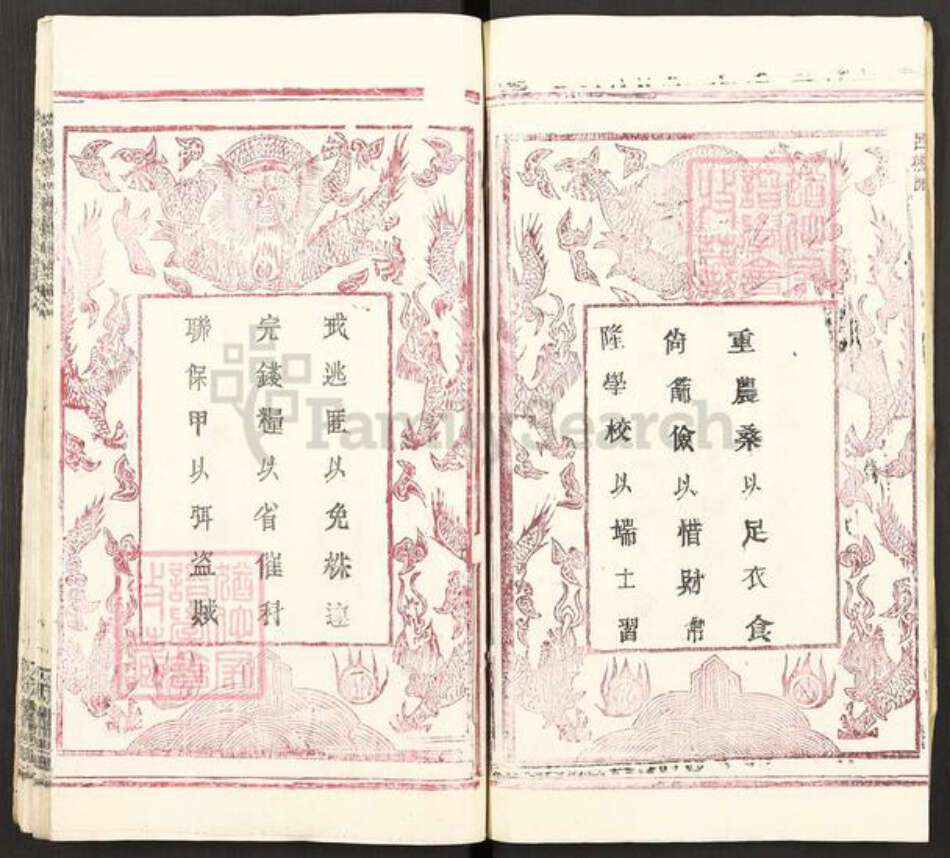 重農桑以足衣食
尚節儉以惜財
隆學校以端士習
戒逃匿以免株連
完錢糧以省催科
聯保甲以弭盜賊
FamilySearch